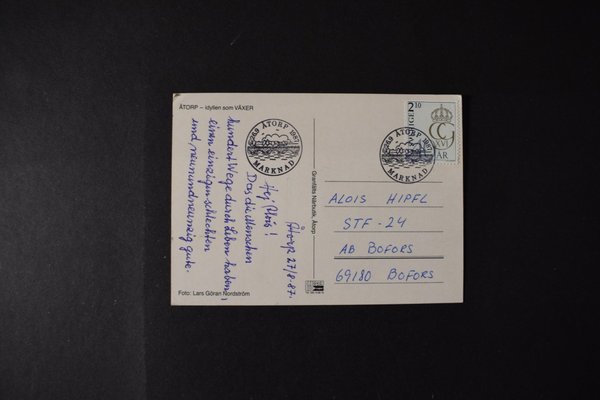 ÅTORP – idyllen som VÄXER
Åtorp 27/8-87.
Hej Alois!
Das die Menschen
hundert Wege durch Leben haben,
einen einzigen schlechten
und, neunundneunzig gute.
Foto: Lars Göran Nordström
Granfälts Närbutik, Åtorp
ÅTORP
MARKNAD
2 10
CG
XVI
ÅR
ÅTORP
MARKNAD
ALOIS HIPFL
STF - 24
AB BOFORS
69180 BOFORS